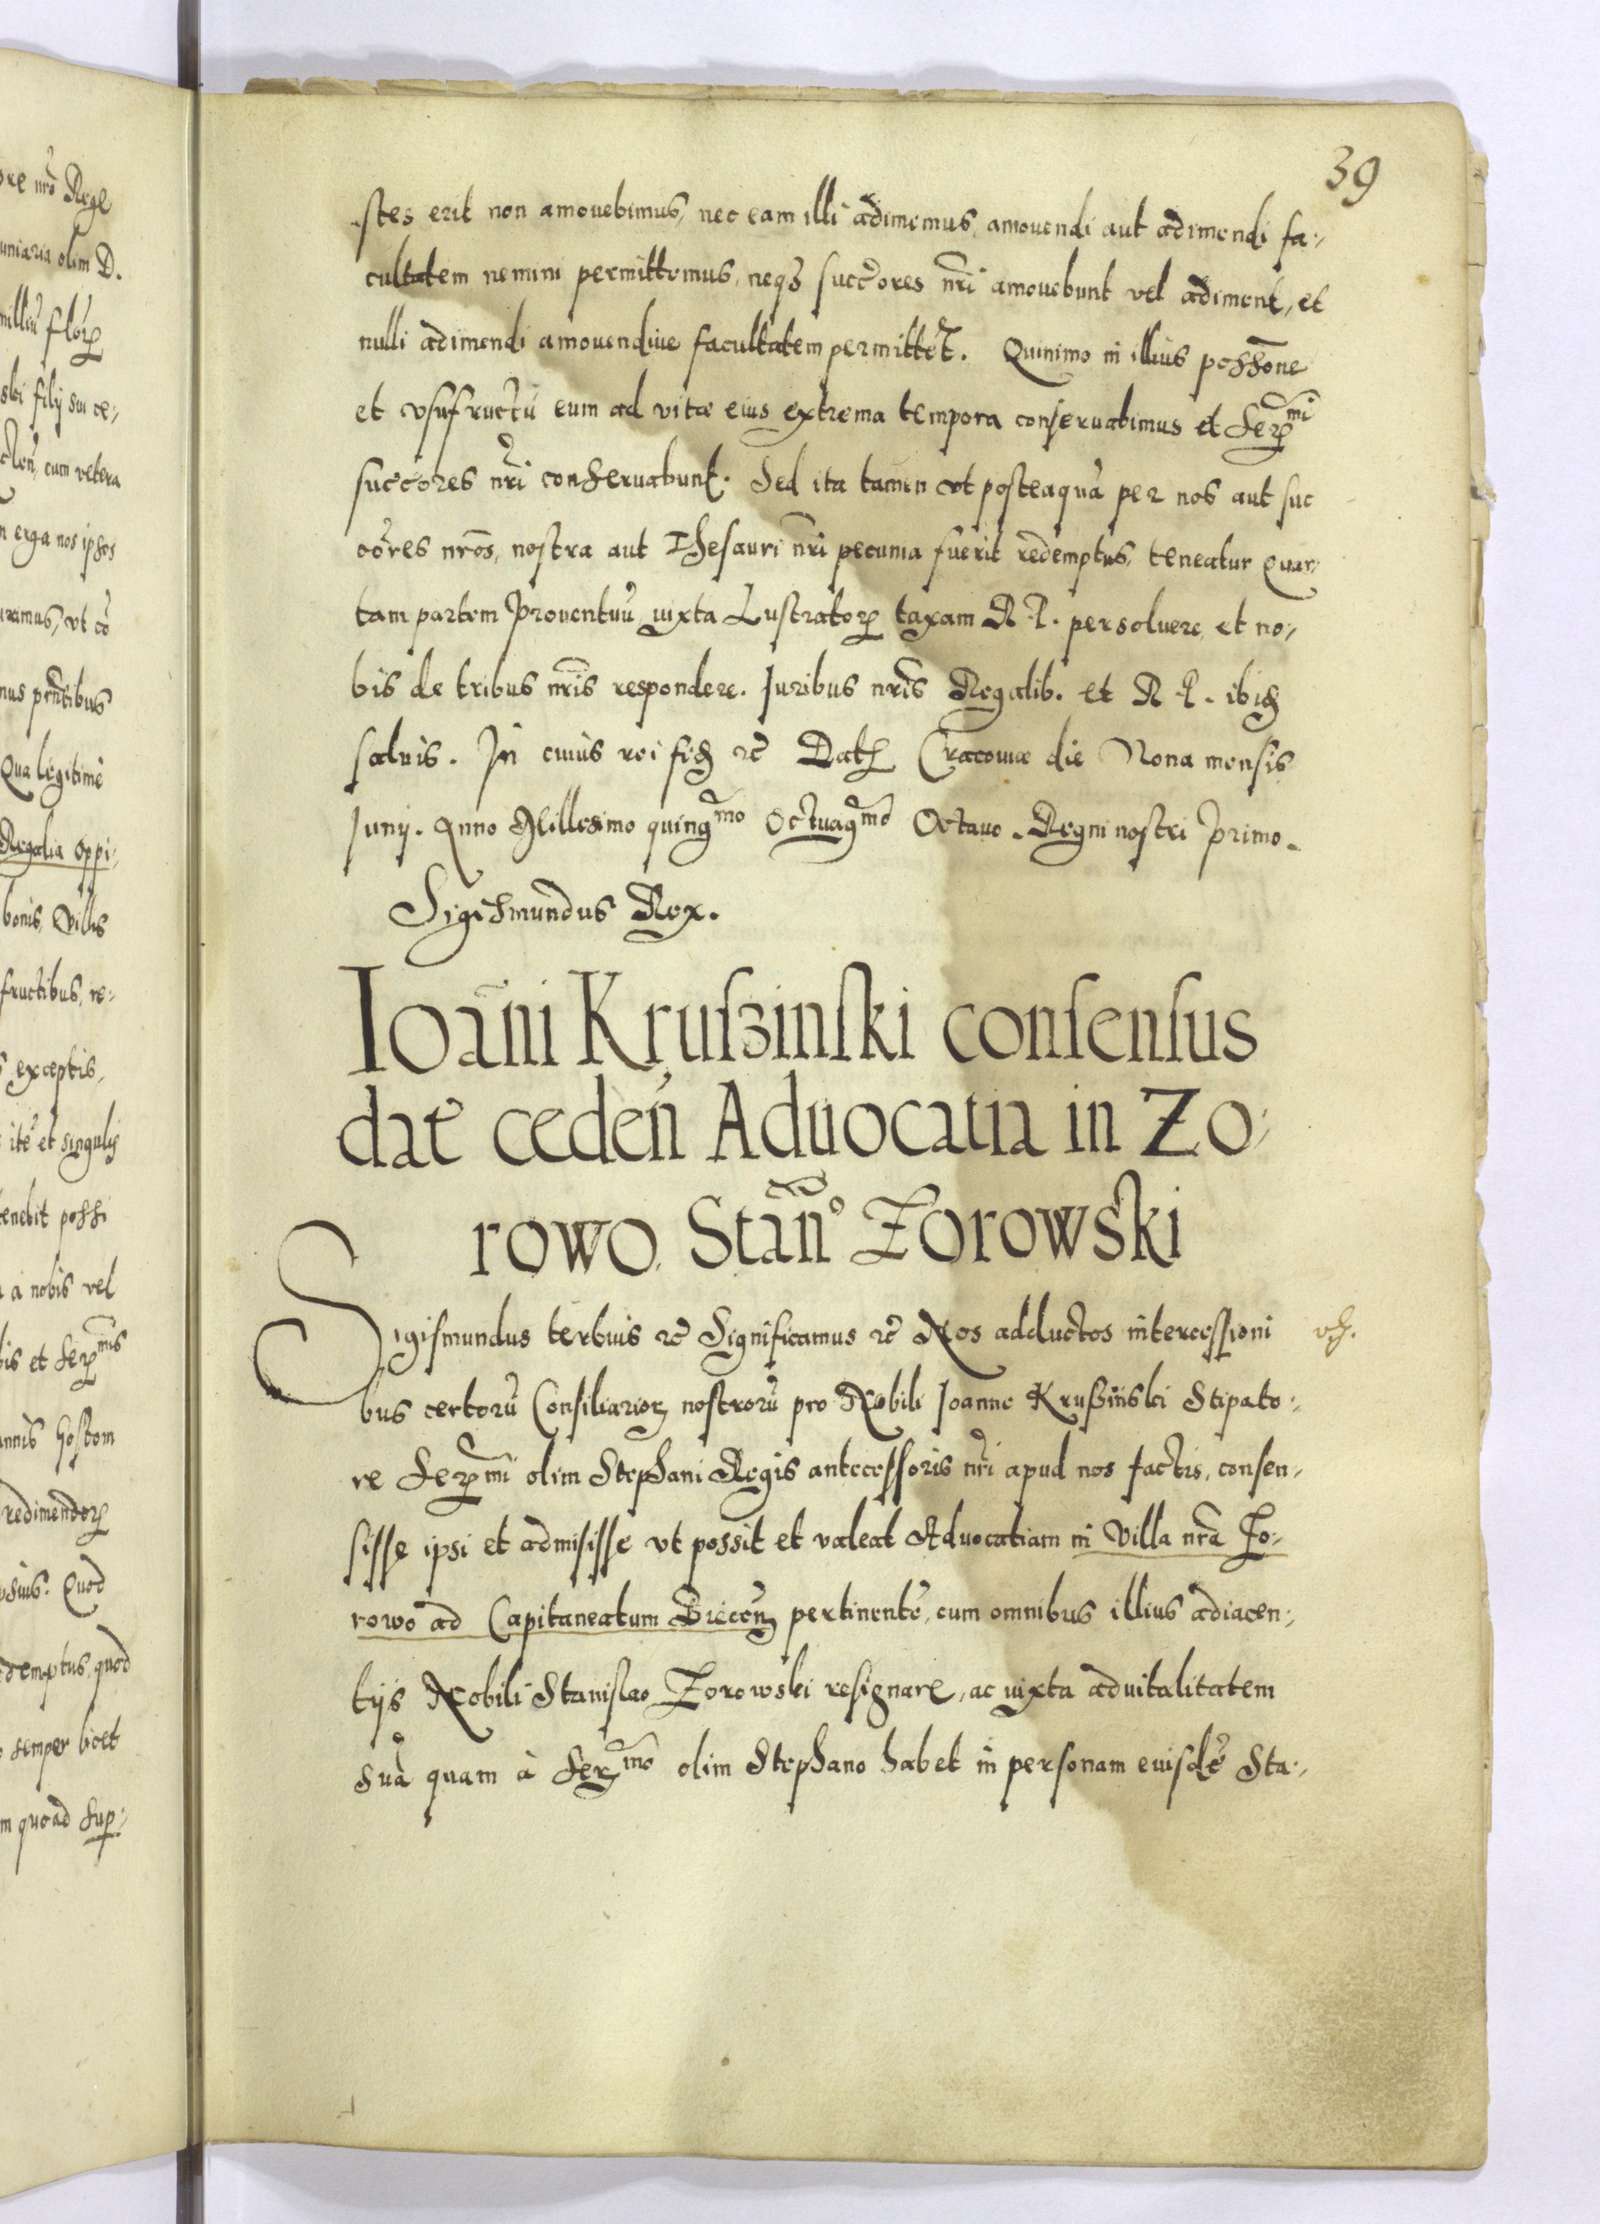 39
stes erit non amouebimus, nec eam illi adimemus, amouendi aut adimendi fa-
cultatem nemini permittemus, neqꝫ succōres nr̄i amouebunt vel adiment, et
nulli adimendi amouendiue facultatem permittēt. Quinimo in illius possōne
et vsufructū eum ad vitæ eius extrema tempora conseruabimus et Serꝫmi
succores nr̄i conseruabunt. Sed ita tamen vt posteaquā per nos aut suc
cōres nr̄os, nostra aut Thesauri nr̄i pecunia fuerit redemptus, teneatur Quar-
tam partem prouentuū iuxta Lustratorꝫ taxam R. P. persoluere, et no-
bis de tribus nr̄is respondere. Juribus nr̄is Regalib. et R. P. ibiꝫ
saluis. In cuius rei fiꝫ ꝛc̄ Datꝫ Cracouiæ die Nona mensis
Junij. Anno Millesimo quingmo Octuagmo Octauo. Regni nostri Primo.
Sigismundus Rex.
Ioāni Kruſzinſki conſenſus
dat̄ ceden̄ Aduocatia in Zo-
rowo Stan̄o Zorowski
Sigismundus tertius ꝛc̄ Significamus ꝛc̄ Nos adductos intercessioni
bus certorū Consiliariorꝫ nostrorū pro Nobili Joanne Kruszinski Stipato-
re Serꝫmi olim Stephani Regis antecessoris nr̄i apud nos factis, consen-
sisse ipsi et admisisse vt possit et valeat Aduocatiam in Villa nr̄a Zo-
rowo ad Capitaneatum Brecen̄ pertinentē, cum omnibus illius adiacen-
tijs Nobili Stanislao Zorowski resignare, ac iuxta aduitalitatem
suā quam à Serꝫmo olim Stephano habet in personam eiusdē Sta-
ore nr̄o Rege
olim D.
cum vetera
erga nos ipsos
Qua legitime
Regalia oppi-
bonis, Villis
fructibus, re-
exceptis,
et singulis
tenebit possi
a nobis vel
et Serꝫmis
redimendorꝫ
Quod
quod
semper licet
quoad sup-